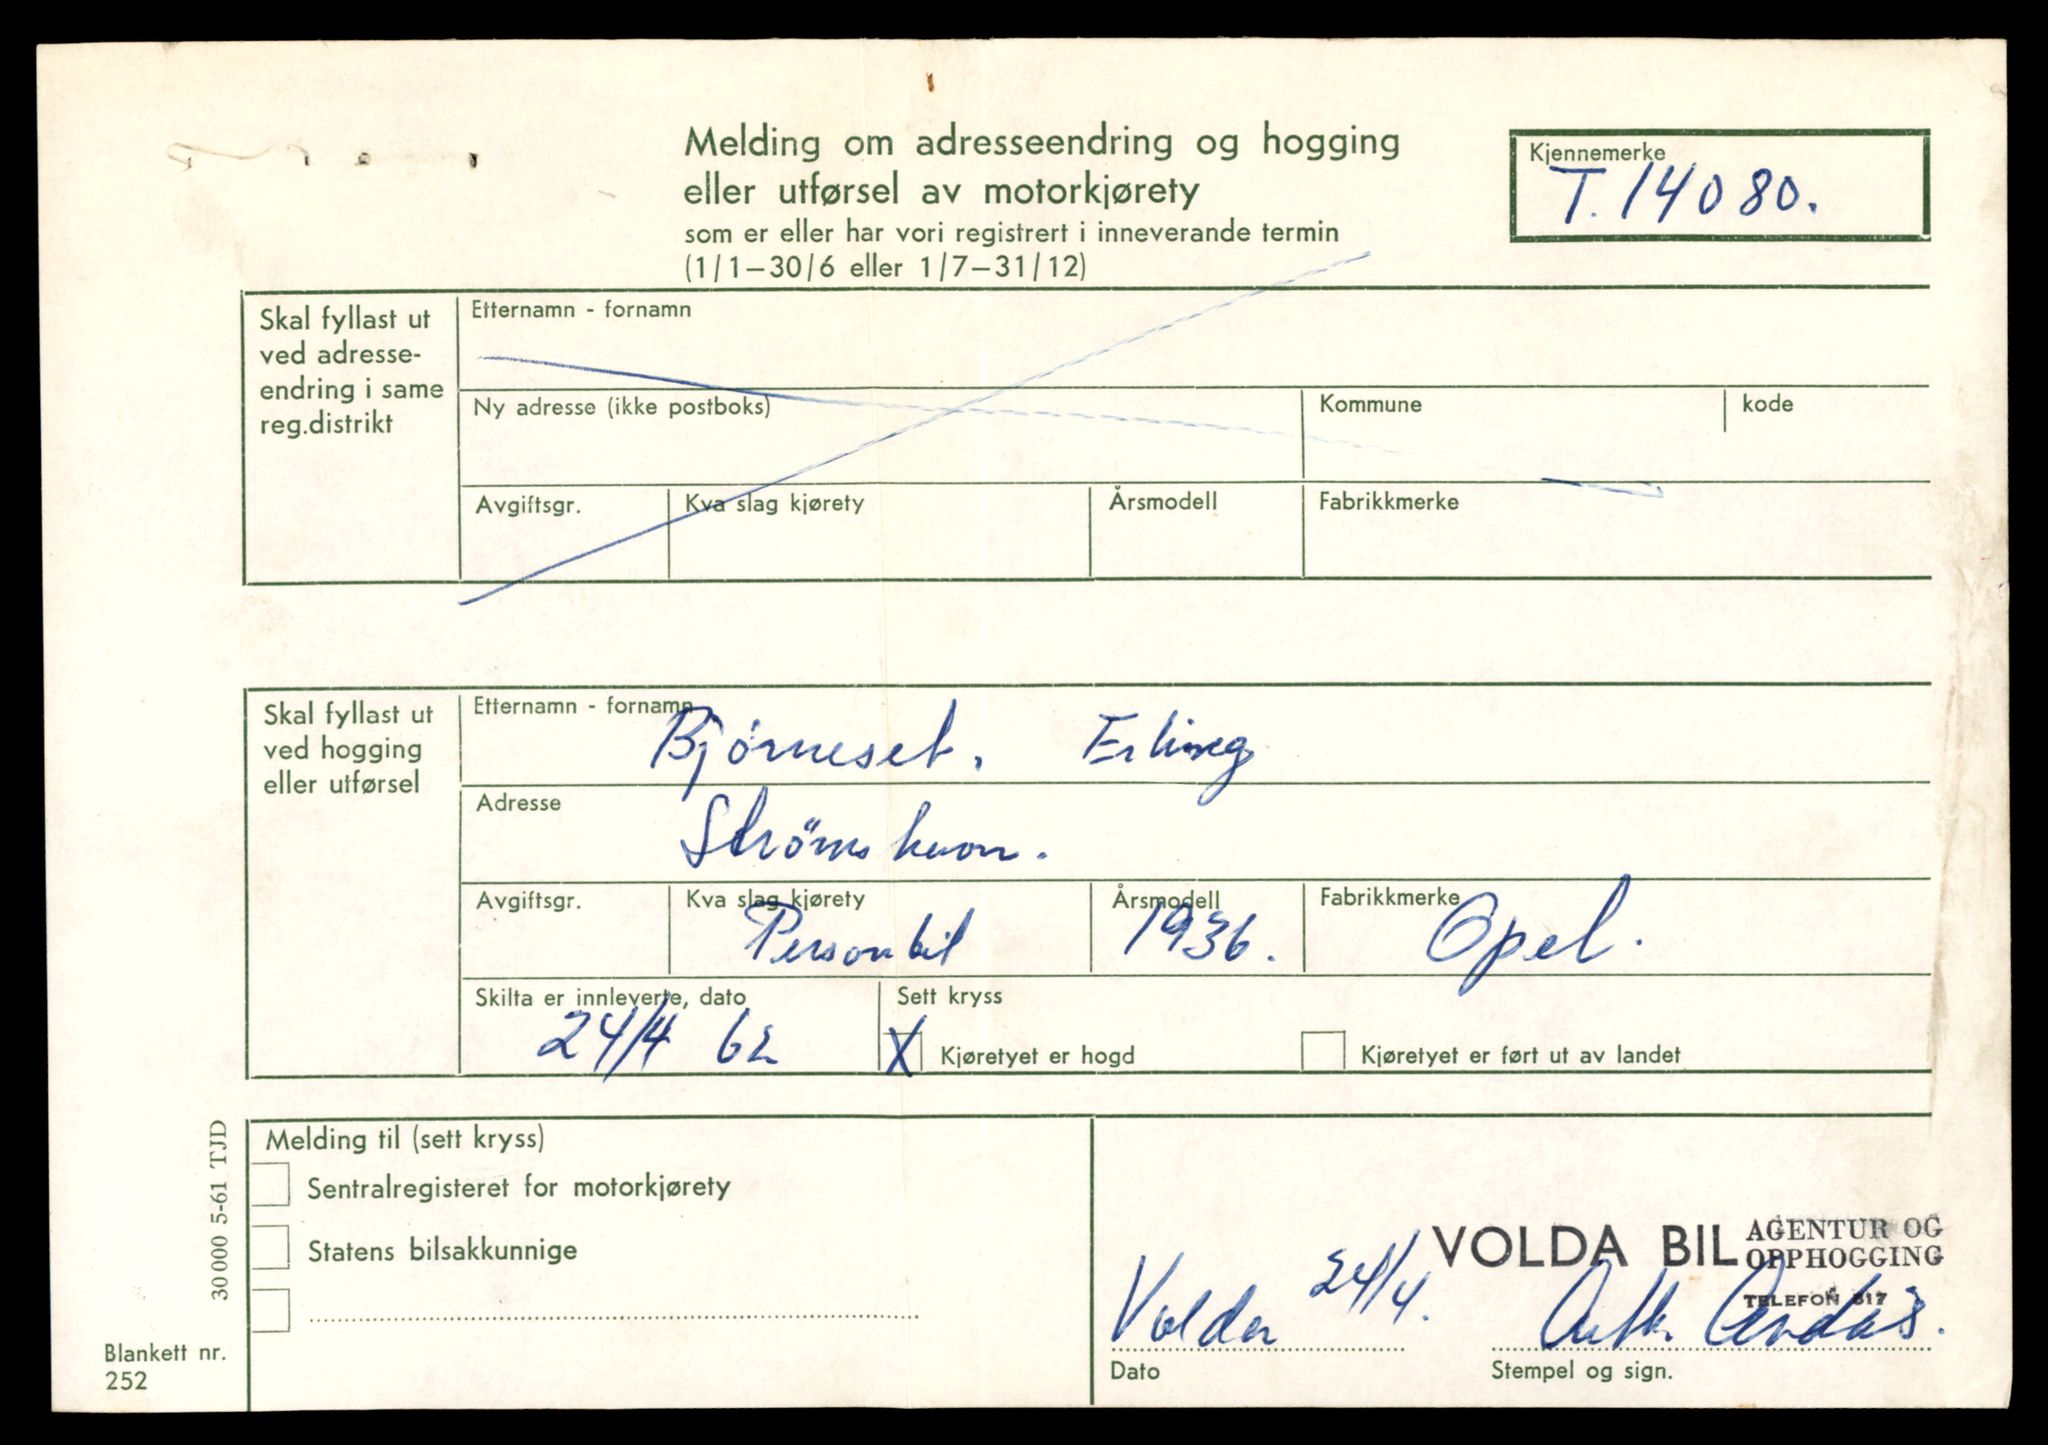 Melding om adresseendring og hogging
eller utførsel av motorkjørety
som er eller har vori registrert i inneverande termin
(1/1–30/6 eller 1/7–31/12)
Kjennemerke
T. 14080.
Skal fyllast ut
ved adresse-
endring i same
reg.distrikt
Etternamn - fornamn
Ny adresse (ikke postboks)
Kommune
kode
Avgiftsgr.
Kva slag kjørety
Årsmodell
Fabrikkmerke
Skal fyllast ut
ved hogging
eller utførsel
Etternamn - fornamn
Bjørneset. Erling
Adresse
Strömshavn.
Avgiftsgr.
Kva slag kjørety
Personbil
Årsmodell
1936.
Fabrikkmerke
Opel.
Skilta er innleverte, dato
24/4 62
Sett kryss
X Kjøretyet er hogd
Kjøretyet er ført ut av landet
Melding til (sett kryss)
Sentralregisteret for motorkjørety
Statens bilsakkunnige
30 000 5-61 TJD
Blankett nr.
252
VOLDA BIL AGENTUR OG
OPPHOGGING
TELEFON 517
Volda 24/4.
Dato
Stempel og sign.